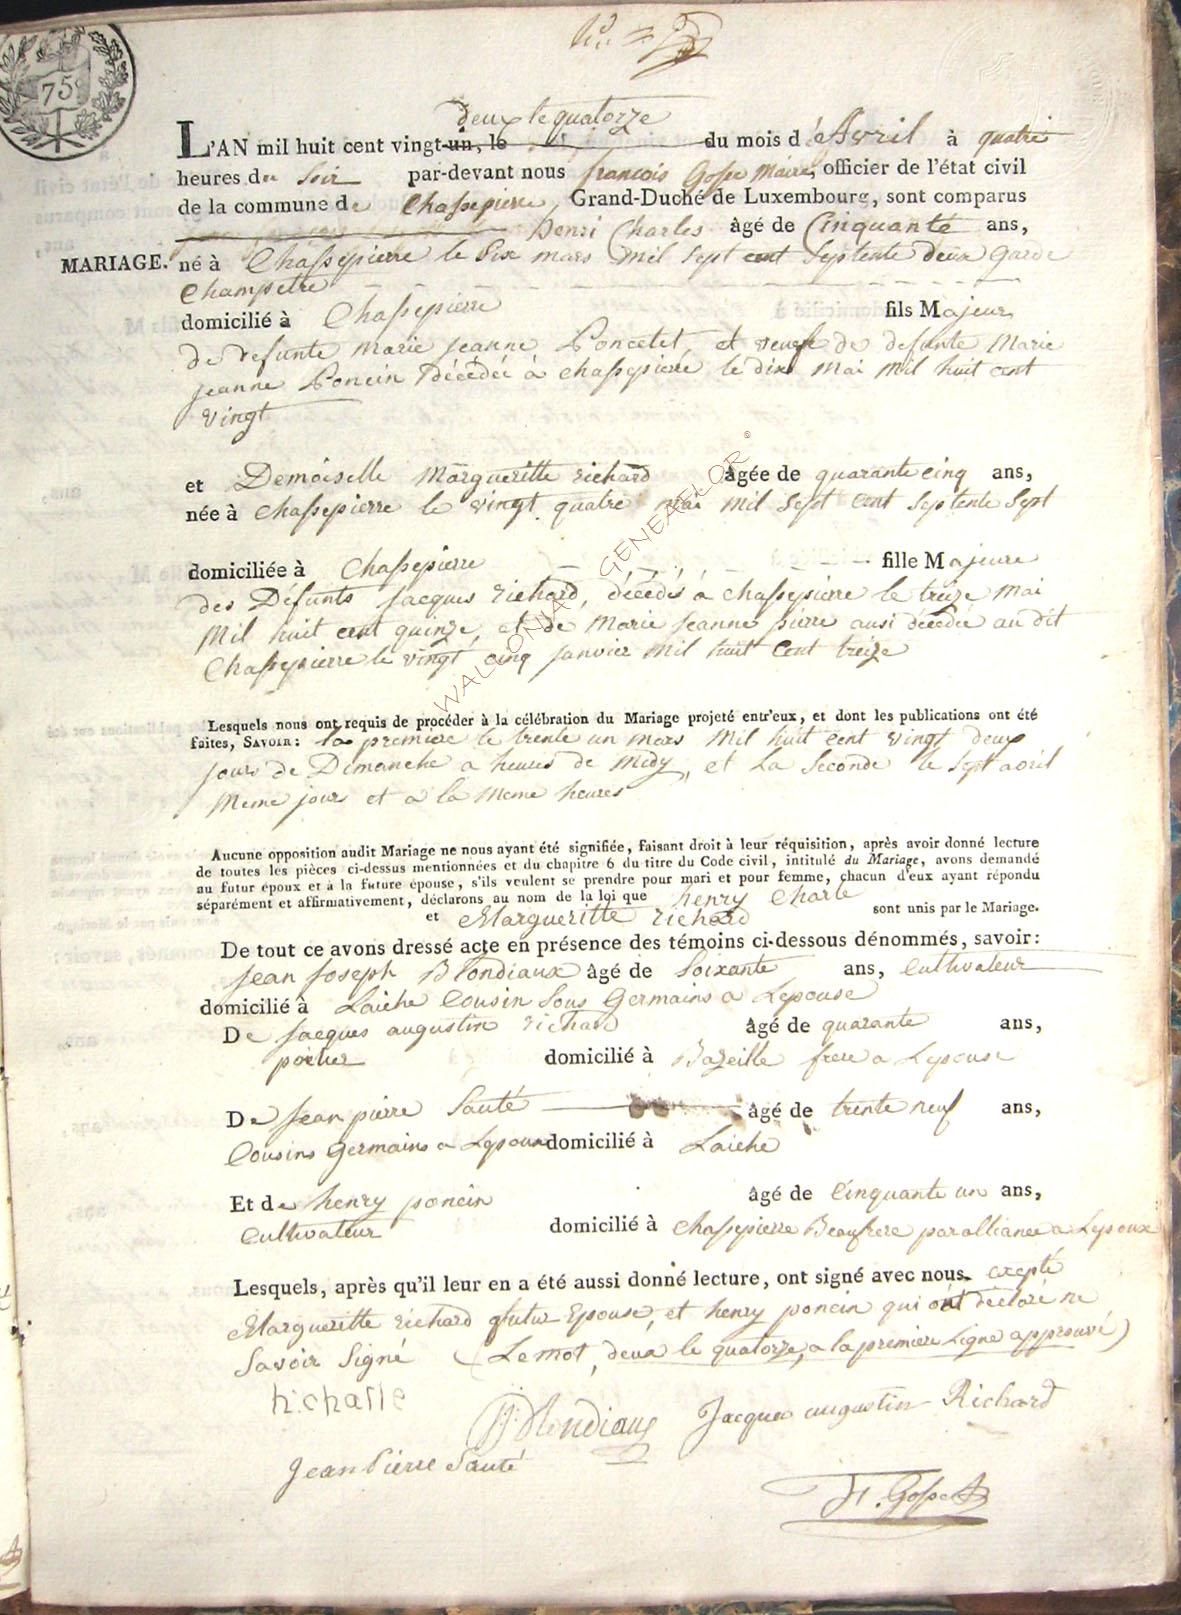 75
deux le quatorze
L'AN mil huit cent vingt-un, le du mois d'Avril à quatre
heures du Soir par-devant nous francois Gosse Maire, officier de l'état civil
de la commune de Chassepierre, Grand-Duché de Luxembourg, sont comparus
henri Charles âgé de Cinquante ans,
MARIAGE. né à Chassepierre le Six mars mil sept cent septente deux Garde
Champetre
domicilié à Chassepierre fils Majeur
de defunte Marie jeanne Poncelet, et veuf de defunte Marie
jeanne Poncin décédée à chassepierre le dix Mai Mil huit cent
vingt
et Demoiselle Margueritte richard âgée de quarante cinq ans,
née à Chassepierre le vingt quatre mai mil Sept cent Septente Sept
domiciliée à Chassepierre fille Majeure
des Défunts jacques richard, décédés a chassepierre le treize Mai
Mil huit cent quinze, et de Marie jeanne pierre ausi décédée au dit
Chassepierre le vingt cinq janvier Mil huit Cent treize
Lesquels nous ont requis de procéder à la célébration du Mariage projeté entr'eux, et dont les publications ont été
faites, SAVOIR: la premiere le trente un mars Mil huit cent vingt deux
jours de Dimanche a heures de Midy, et La Seconde le Sept avril
Meme jours et a la Meme heures
Aucune opposition audit Mariage ne nous ayant été signifiée, faisant droit à leur réquisition, après avoir donné lecture
de toutes les pièces ci-dessus mentionnées et du chapitre 6 du titre du Code civil, intitulé du Mariage, avons demandé
au futur époux et à la future épouse, s'ils veulent se prendre pour mari et pour femme, chacun d'eux ayant répondu
séparément et affirmativement, déclarons au nom de la loi que henry Charle
et Margueritte richard sont unis par le Mariage.
De tout ce avons dressé acte en présence des témoins ci-dessous dénommés, savoir:
jean joseph Blondiaux âgé de Soixante ans, Cultivateur
domicilié à Laiche Cousin Sous Germains a Lepouse
De jacques augustin richard âgé de quarante ans,
potier domicilié à Bazeille frere a Lepouse
De jean pierre Sauté âgé de trente neuf ans,
Cousins Germains a Lepouse domicilié à Laiche
Et de henry poncin âgé de Cinquante un ans,
Cultivateur domicilié à Chassepierre Beaufrere par alliance a Lepoux
Lesquels, après qu'il leur en a été aussi donné lecture, ont signé avec nous. excepté
Margueritte richard futur Epouse, et henry poncin qui ont declaré ne
Savoir Signé (Le mot, deux le quatorze, a la premiere Ligne approuvé)
h. charle
JJ Blondiaux Jacques augustin Richard
Jean Pierre Sauté
F. Gosse
WALLONIA GENEAFLOR ©